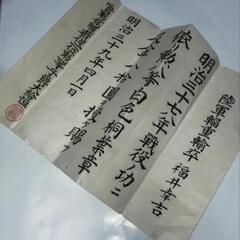 陸軍輜重輸卒 福井幸吉
明治三十七八年戦役ノ功ニ
依リ勲八等白色桐葉章
及金 拾圓ヲ授ケ賜フ
明治三十九年四月一日
賞勲局総裁従 大給恒